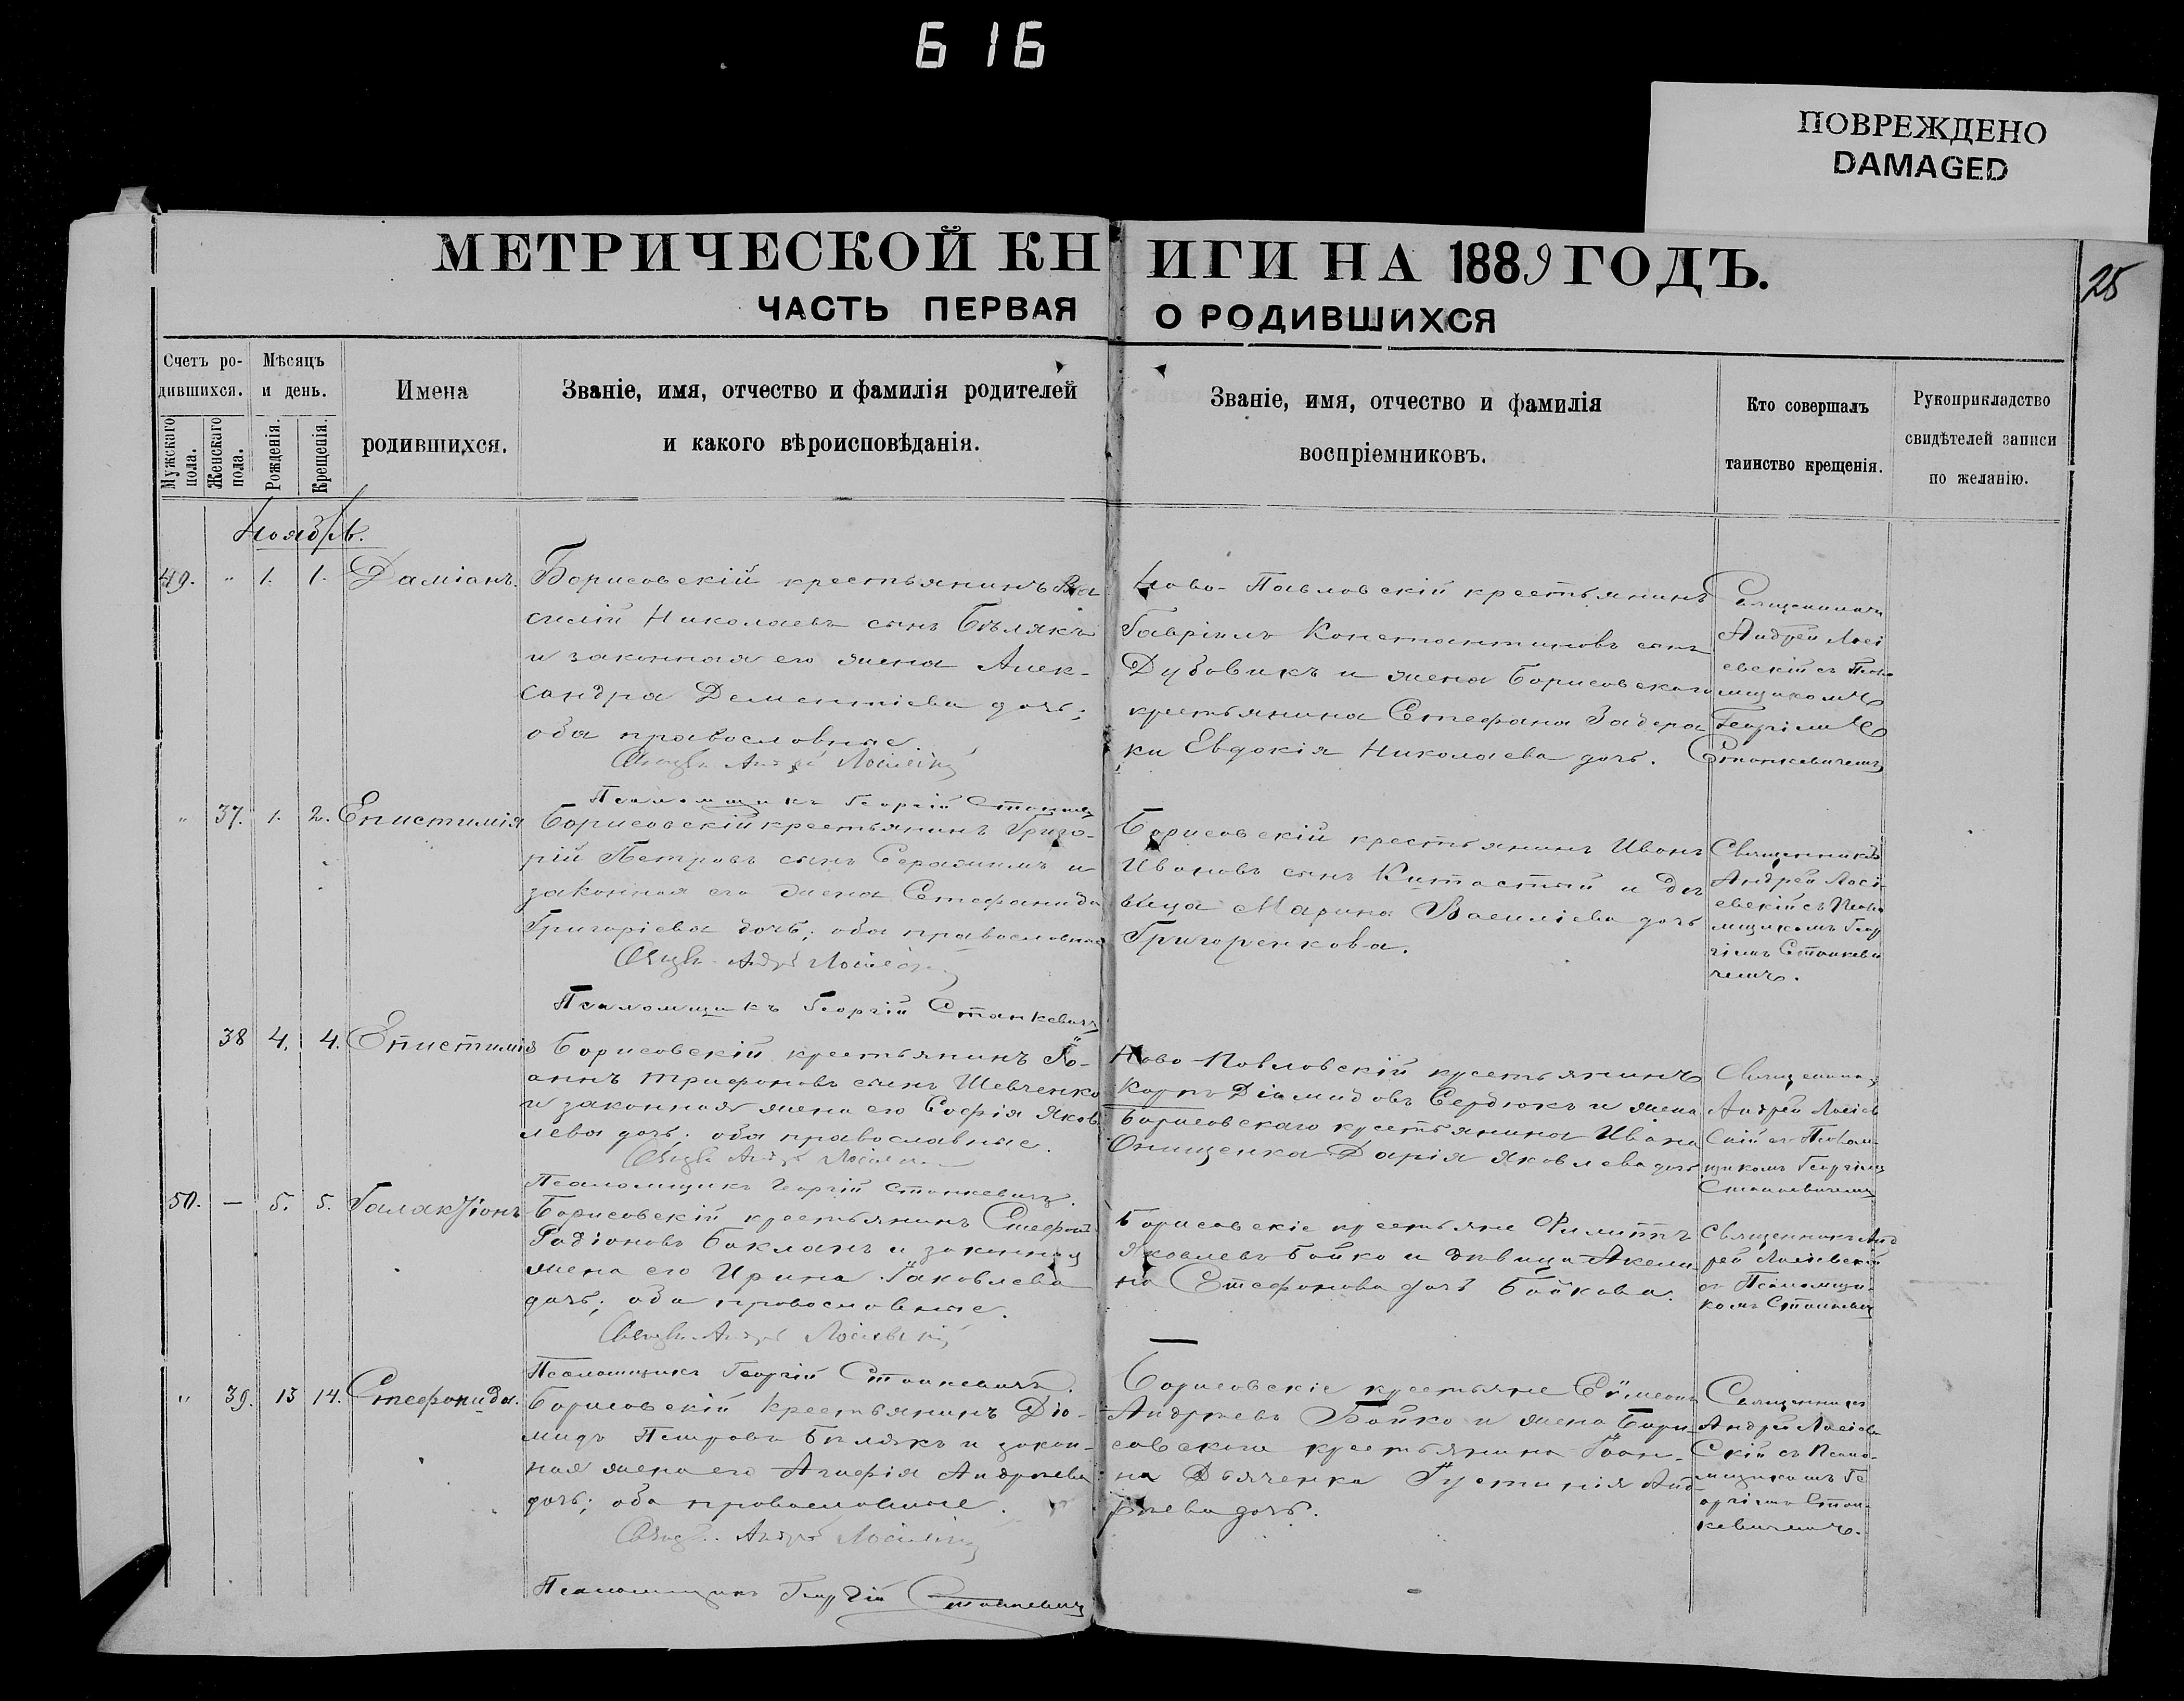 616
ПОВРЕЖДЕНО
DAMAGED
МЕТРИЧЕСКОЙ КНИГИ НА 1889 ГОДЪ.
ЧАСТЬ ПЕРВАЯ О РОДИВШИХСЯ
25
Счетъ ро-
дившихся.
Мужскаго пола.
Женскаго пола.
Мѣсяцъ
и день.
Рожденія.
Крещенія.
Имена
родившихся.
Званіе, имя, отчество и фамилія родителей
и какого вѣроисповѣданія.
Званіе, имя, отчество и фамилія
воспріемниковъ.
Кто совершалъ
таинство крещенія.
Рукоприкладство
свидѣтелей записи
по желанію.
Ноябрь.
49. " 1. 1. Даміанъ.
Борисовскій крестьянинъ Ва
силій Николаевъ сынъ Бѣлякъ
и законная его жена Алек-
сандра Дементіева дочь;
оба православные
Псаломщикъ Георгій
Ново-Павловскій крестьянинъ
Гавріилъ Константиновъ сынъ
Дубовикъ и жена Борисовскаго
крестьянина Стефана Задера
ки Евдокія Николаева дочь.
Священникъ
Андрей Лосі
евскій съ Псало
мщикомъ
Георгіемъ
Станкевичемъ
" 37. 1. 2. Епистимія
Борисовскій крестьянинъ Григо-
рій Петровъ сынъ Серажимъ и
законная его жена Стефанида
Григоріева дочь; оба православные
Псаломщикъ Георгій Станкевичъ
Борисовскій крестьянинъ Иванъ
Ивановъ сынъ Китастый и дѣ
вица Марина Василіева дочь
Григоренкова.
Священникъ
Андрей Лосі-
евскій съ Псало
мщикомъ Геор
гіемъ Станкеви
чемъ.
38 4. 4. Епистимія
Борисовскій крестьянинъ Іо-
аннъ Трифоновъ сынъ Шевченко
и законная жена его Софія Яков
лева дочь; оба православные.
Псаломщикъ Георгій Станкевичъ.
Ново-Павловскій крестьянинъ
Карпъ Діамидовъ Сердюкъ и жена
Борисовскаго крестьянина Ивана
Онищенка Дарія Яковлева дочь
Священникъ
Андрей Лосіев
скій съ Псалом-
щикомъ Георгіемъ
Станкевичемъ
50. — 5. 5. Галактіонъ
Борисовскій крестьянинъ Стефанъ
Родіоновъ Бакланъ и законная
жена его Ирина Іаковлева
дочь; оба православные.
Псаломщикъ Георгій Станкевичъ.
Борисовскіе крестьяне Филиппъ
Яковлевъ Бойко и дѣвица Акели
на Стефанова дочь Бойкова.
Священникъ Анд
рей Лосіевскій
съ Псаломщи-
комъ Станкевич
" 39. 13 14. Стефанида.
Борисовскій крестьянинъ Діо-
мидъ Петровъ Бѣлякъ и закон-
ная жена его Агафія Андреева
дочь; оба православные.
Псаломщикъ Георгій Станкевичъ
Борисовскіе крестьяне Сѵмеонъ
Андреевъ Бойко и жена Бори-
совскаго крестьянина Іоан-
на Дьяченка Іустинія Анд
реева дочь.
Священникъ
Андрей Лосіев
скій съ Псало-
мщикомъ Ге
оргіемъ Стан-
кевичемъ.